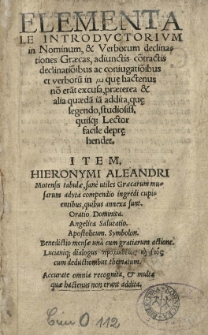 ELEMENTA
LE INTRODVCTORIVM
in Nominum, & Verborum declina
tiones Græcas, adiunctis cōtractis
declinatiōibus ac coniugatiōibus
et verborū in quę hactenus
nō erāt excusa, præterea &
alia quædā tā addita, quę
legendo, studiosus,
quisq; Lector
facile deprę
hendet.
ITEM,
HIERONYMI ALEANDRI
Motensis tabulæ, sanè utiles Græcarum mu
sarum adyta compendio ingredi cupi
entibus, quibus annexa sunt.
Oratio Dominica.
Angelica Salutatio.
Apostolorum Symbolon.
Benedictio mensæ unà cum gratiarum actione.
Luciani dialogus
cum deductionibus thematum.
Accurate omnia recognita, & multa
quæ hactenus non erant addita.
Cim O 112